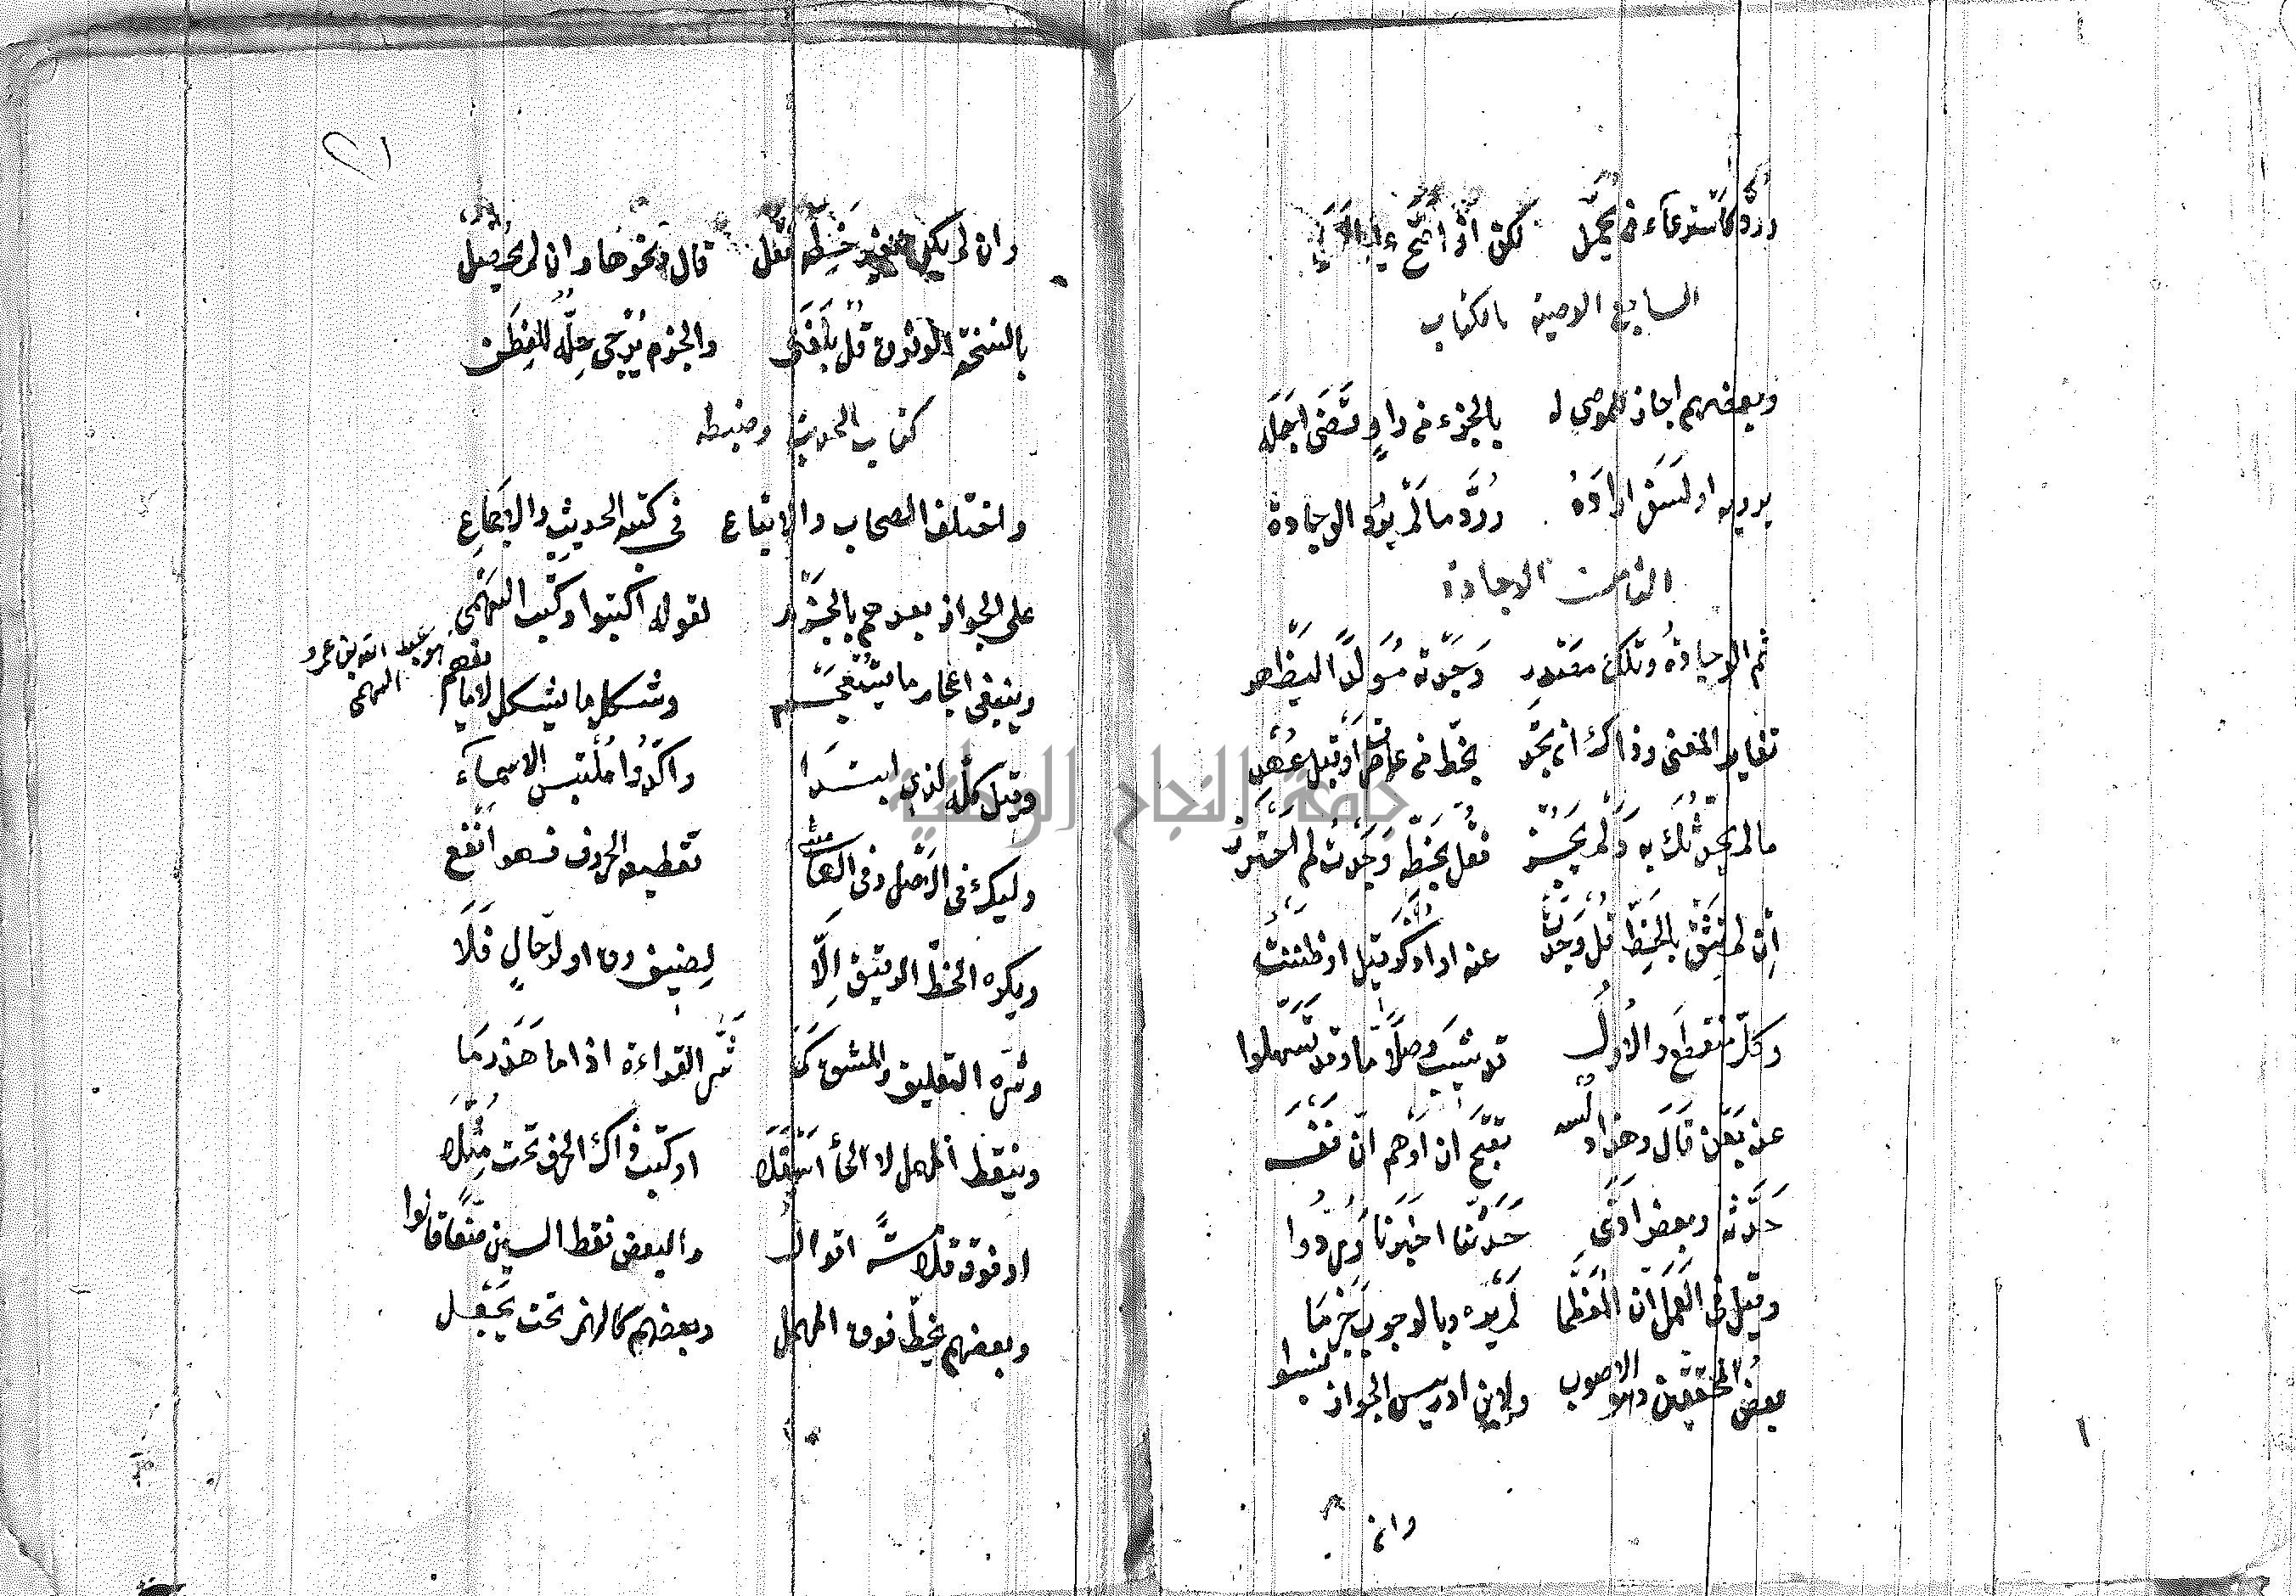 ورد كاستوعاء في تحمل لكن اذا صح
السابع الوصية بالكتاب
وبعضهم اجاز للموصى له بالجزء من راو قضى اجله
يرويه او لسفر اراده ورد ما لم يرد الوجادة
الثامن الوجادة
ثم الوجادة وتلك مصدر وجدته مولدا ليظهر
تغاير المعنى وذاك ان تجد بخط من عاصرت او قبل عهد
ما لم يحدثك به ولم يجز فقل بخطه وجدت لم احترز
ان لم تثق بالخط قل وجدت عنه او اذكر قيل او ظننت
وكل منقطع والاول قد شيب وصلا ما وقد تسهلوا
عن بعن قال وهذا دلسه تقبح ان اوهم ان نفسه
حدثه وبعض ادى حدثنا اخبرنا وردوا
وقيل في العمل ان المعظما لم يره وبالوجوب جزما
بعض المحققين وهو الاصوب ولابن ادريس الجواز نسبوا
وان
وان لم يكن بخطه فقل قال ونحوها وان لم يحصل
بالنسخة الوثوق قل بلغني والجزم يرجى حله للفطن
كتاب الحديث وضبطه
واختلف الصحاب والاتباع في كتبه الحديث والاجماع
على الجواز بعدهم بالجزم لقوله اكتبوا وكتب السهمي
هو عبد الله بن عمرو السهمي
وينبغي اعجام ما يستعجم وشكل ما يشكل لا ما يفهم
وقيل كله لذي ابتدا واكدوا ملتبس الاسماء
وليك في الاصل وفي الهامش مع تقطيعه الحروف فهو انفع
ويكره الخط الدقيق الا لضيق رق او لرحال فلا
وشره التعليق والمشق كما شر القراءة اذا ما هذرما
وينقط المهمل لا الحا اسفلا او كتب ذاك الحرف تحت مثلا
او فوقه قلامة اقوال والبعض نقط السين صفا قالوا
وبعضهم يخط فوق المهمل وبعضهم كالهمز تحت يجعل